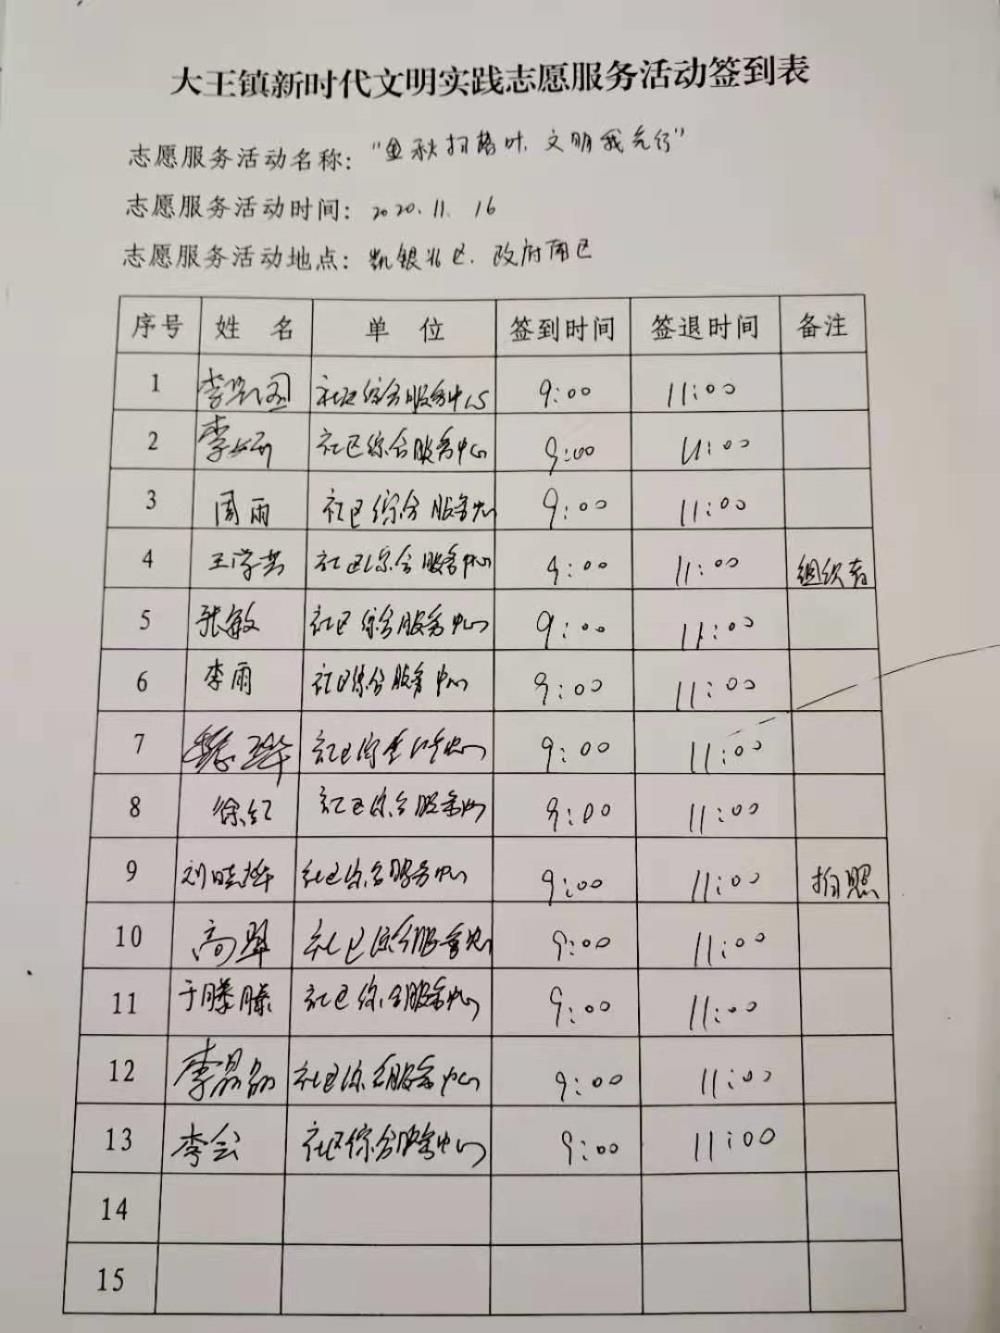 大王镇新时代文明实践志愿服务活动签到表
志愿服务活动名称："金秋扫落叶，文明我先行"
志愿服务活动时间：2020.11.16
志愿服务活动地点：凯银北区．政府南区
序号 姓 名 单 位 签到时间 签退时间 备注
1 李 社区综合服务中心 9:00 11:00
2 李 社区综合服务中心 9:00 11:00
3 周雨 社区综合服务中心 9:00 11:00
4 王学芸 社区综合服务中心 9:00 11:00 组织者
5 张敏 社区综合服务中心 9:00 11:00
6 李雨 社区综合服务中心 9:00 11:00
7 社区 9:00 11:00
8 徐红 社区综合服务中心 9:00 11:00
9 刘晓烨 社区综合服务中心 9:00 11:00 拍照
10 高 社区综合服务中心 9:00 11:00
11 于滕滕 社区综合服务中心 9:00 11:00
12 李晶晶 社区综合服务中心 9:00 11:00
13 李会 社区综合服务中心 9:00 11:00
14
15